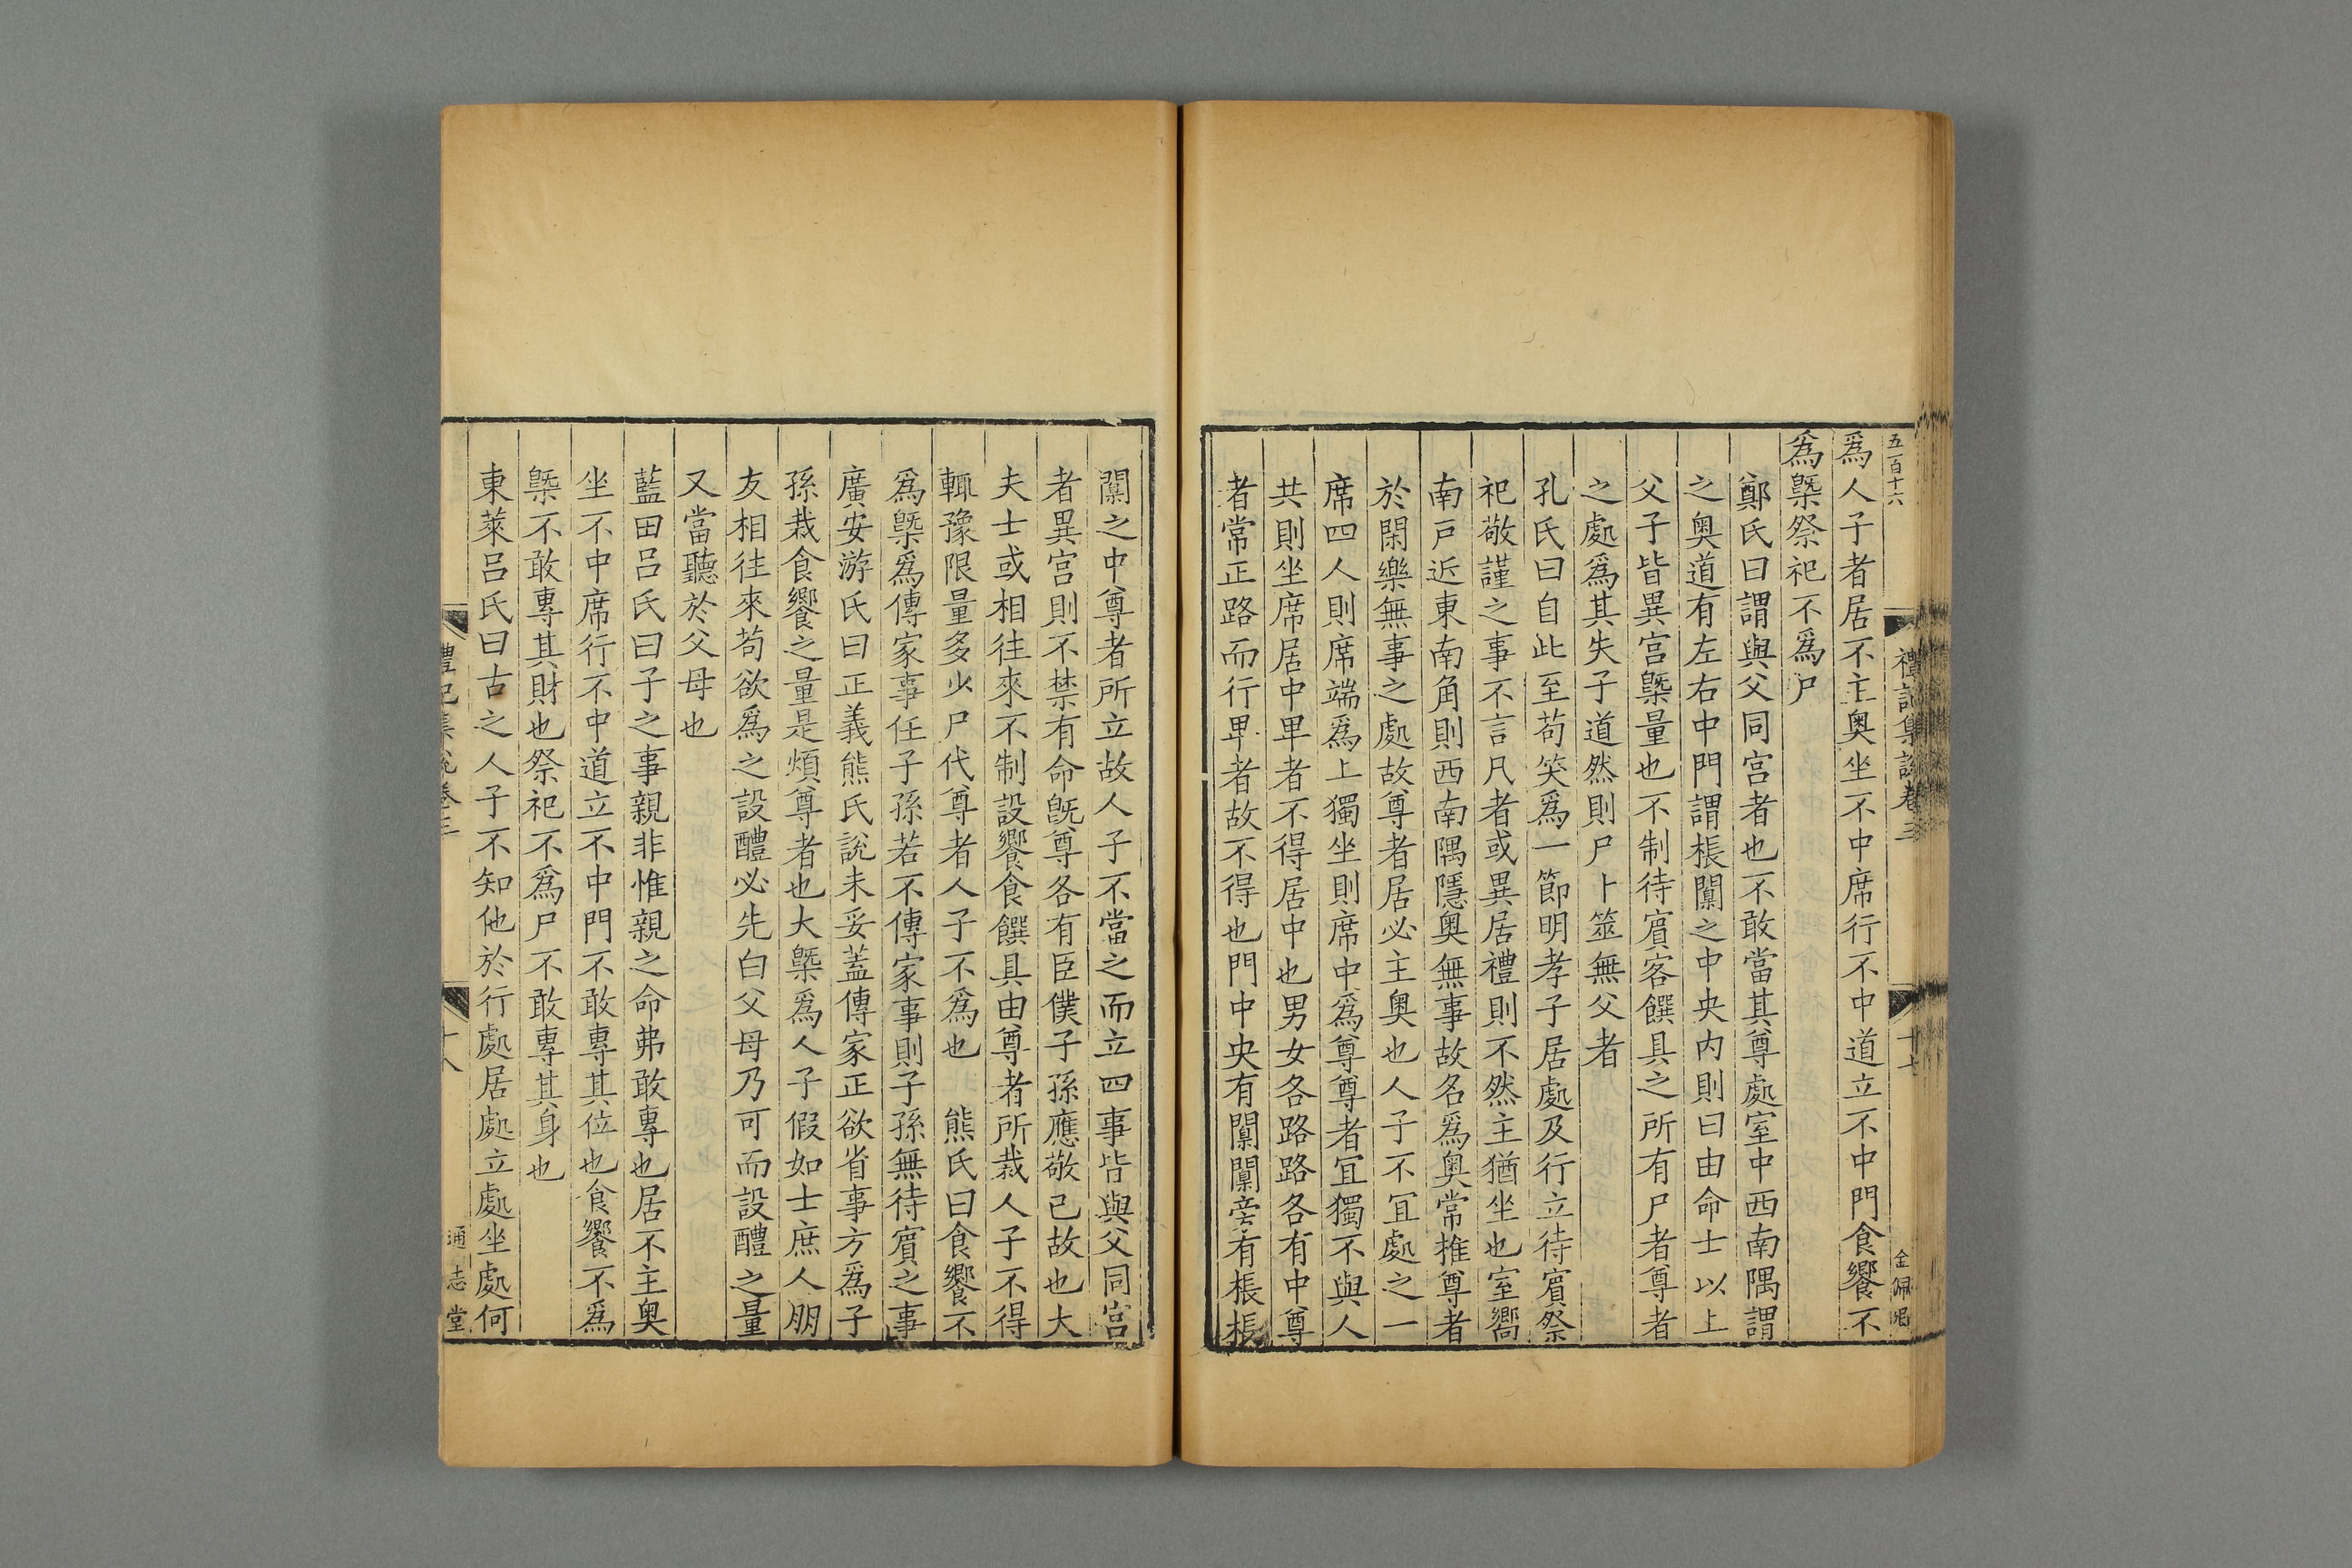 五百十六
禮記集說卷三
十七
金佩
爲人子者居不主奧坐不中席行不中道立不中門食饗不
爲槩祭祀不爲尸
鄭氏曰謂與父同宫者也不敢當其尊處室中西南隅謂
之奧道有左右中門謂棖闑之中央内則曰由命士以上
父子皆異宫槩量也不制待賔客饌具之所有尸者尊者
之處爲其失子道然則尸卜筮無父者
孔氏曰自此至苟笑爲一節明孝子居處及行立待賔祭
祀敬謹之事不言凡者或異居禮則不然主猶坐也室嚮
南戸近東南角則西南隅隱奥無事故名爲奥常推尊者
於閑樂無事之處故尊者居必主奥也人子不冝處之一
席四人則席端爲上獨坐則席中爲尊尊者冝獨不與人
共則坐席居中卑者不得居中也男女各路路各有中尊
者常正路而行卑者故不得也門中央有闑闑旁有棖棖
闑之中尊者所立故人子不當之而立四事皆與父同宫
者異宫則不禁有命旣尊各有臣僕子孫應敬已故也大
夫士或相往來不制設饗食饌具由尊者所裁人子不得
輒豫限量多少尸代尊者人子不爲也　熊氏曰食饗不
爲槩爲傳家事任子孫若不傳家事則子孫無待賔之事
廣安游氏曰正義熊氏說未妥蓋傳家正欲省事方爲子
孫裁食饗之量是煩尊者也大槩爲人子假如士庶人朋
友相往來苟欲爲之設醴必先白父母乃可而設醴之量
又當聽於父母也
藍田吕氏曰子之事親非惟親之命弗敢專也居不主奥
坐不中席行不中道立不中門不敢專其位也食饗不爲
槩不敢專其財也祭祀不爲尸不敢專其身也
東萊吕氏曰古之人子不知他於行處居處立處坐處何
禮記集說卷三
十八
通志堂